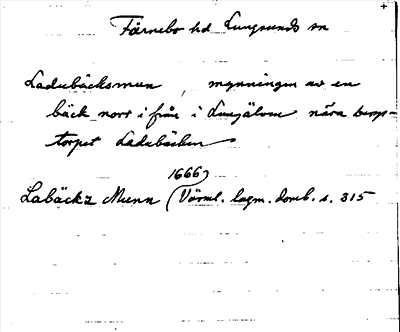 Färnebo hd Lungsunds sn
Ladubäcksmun, mynningen av en
bäck norr ifrån i Lungälven nära bergs-
torpet Ladubäcken
1666
Labäckz Munn (Värml. lagm. domb. s. 315